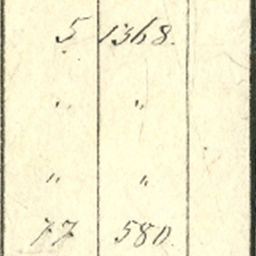 5 1368.
" "
" "
77 580.